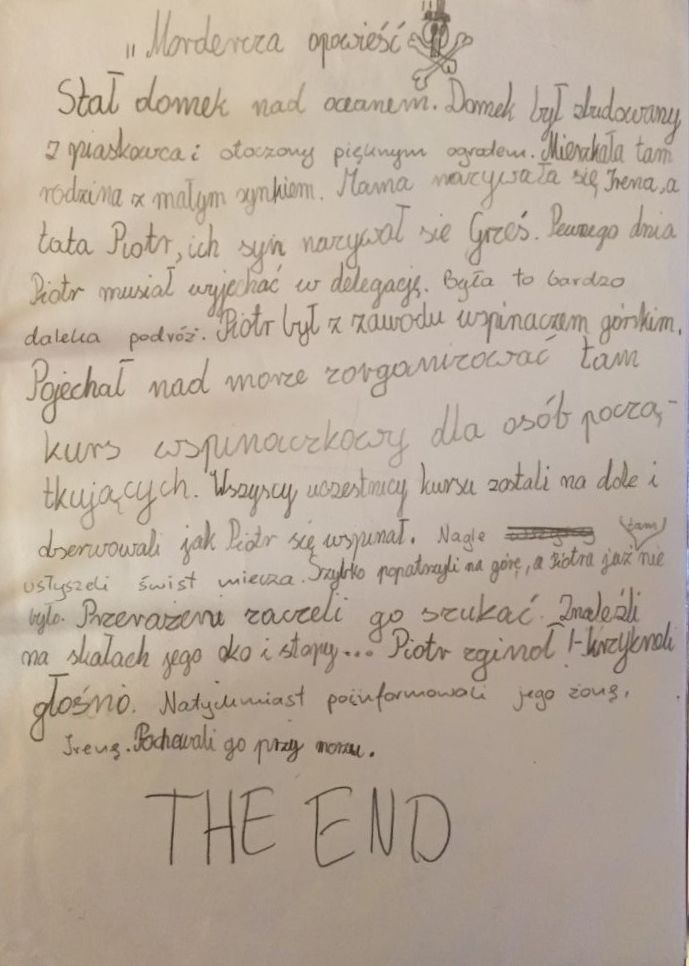 „Mordercza opowieść
Stał domek nad oceanem. Domek był zbudowany
z piaskowca i otoczony pięknym ogrodem. Mieszkała tam
rodzina z małym synkiem. Mama nazywała się Irena, a
tata Piotr, ich syn nazywał sie Grześ. Pewnego dnia
Piotr musiał wyjechać w delegację. Była to bardzo
daleka podróż. Piotr był z zawodu wspinaczem górskim.
Pojechał nad morze zorganizować tam
kurs wspinaczkowy dla osób począ-
tkujących. Wszyscy uczestnicy kursu zostali na dole i
obserwowali jak Piotr się wspinał. Nagle
usłyszeli świst miecza. Szybko popatrzyli na górę, a Piotra już tam nie
było. Przerażeni zaczeli go szukać. Znaleźli
na skałach jego oko i stopy... Piotr zginoł!-krzykneli
głośno. Natychmiast poinformowali jego żonę,
Irenę. Pochowali go przy morzu.
THE END